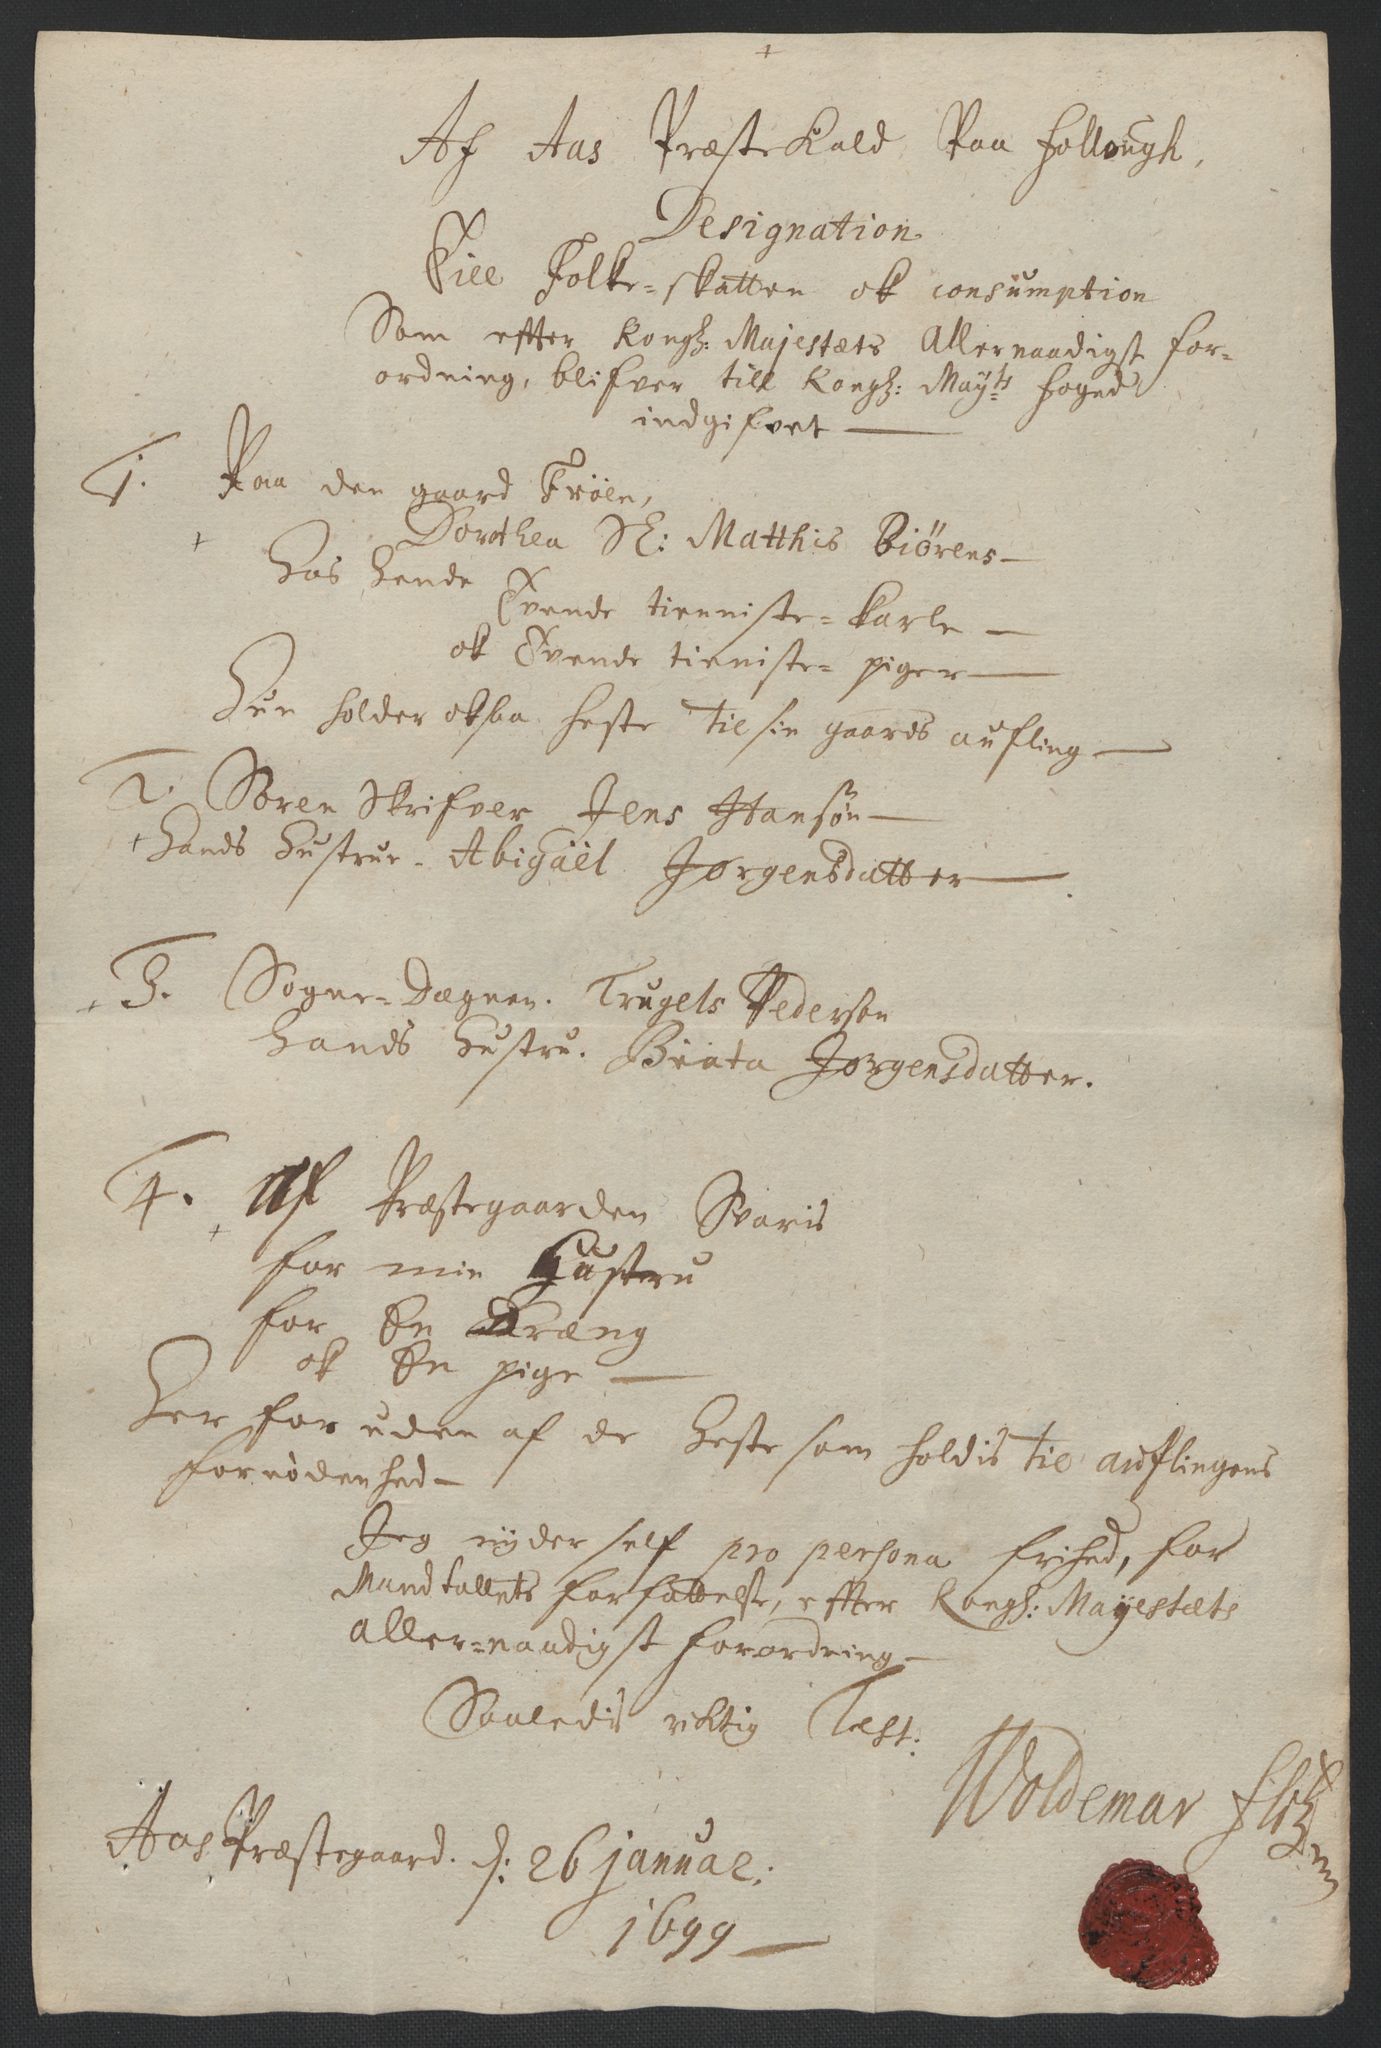 Af Aas Præste Kald Paa follough,
Designation
Till Folke-skatten ok consumption
Som efter Kongl: Majestæts Allernaadigst for-
ordning, blifver till Kongl: Mayts foged
indgifvet —
1. Paa den gaard Frøen,
Dorothea Sl: Matthis Biörens —
Hos hende
Tvende tienniste-karle —
ok Tvende tieniste-piger —
Hun holder oksaa heste til sin gaards aufling —
2. Soren Skrifver Jens Hansøn —
Hands Hustrue. Abigäel Jørgensdatter —
3. Sogne-Dægnen. Trugels Pederson
Hands Hustru. Beata Jørgensdatter.
4. Af Præstegaarden Svaris
for min Hustru
for En Dræng
ok En pige —
Her foruden af de heste som holdis til auflingens
fornødenhed —
Jeg nyder self pro persona frihed, for
Mandtallets forfattelse, efter Kongl: Mayestæts
aller-naadigst forordning —
Saaledis riktig Test:
Woldemar
Aas Præstegaard. d: 26 januar:
1699 —